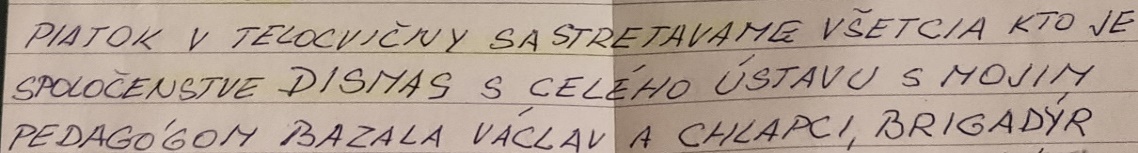 PIATOK V TELOCVIČNY SA STRETAVAME VŠETCIA KTO JE
SPOLOČENSTVE DISMAS S CELÉHO ÚSTAVU S MOJIM
PEDAGÓGOM BAZALA VÁCLAV A CHLAPCI, BRIGADÝR